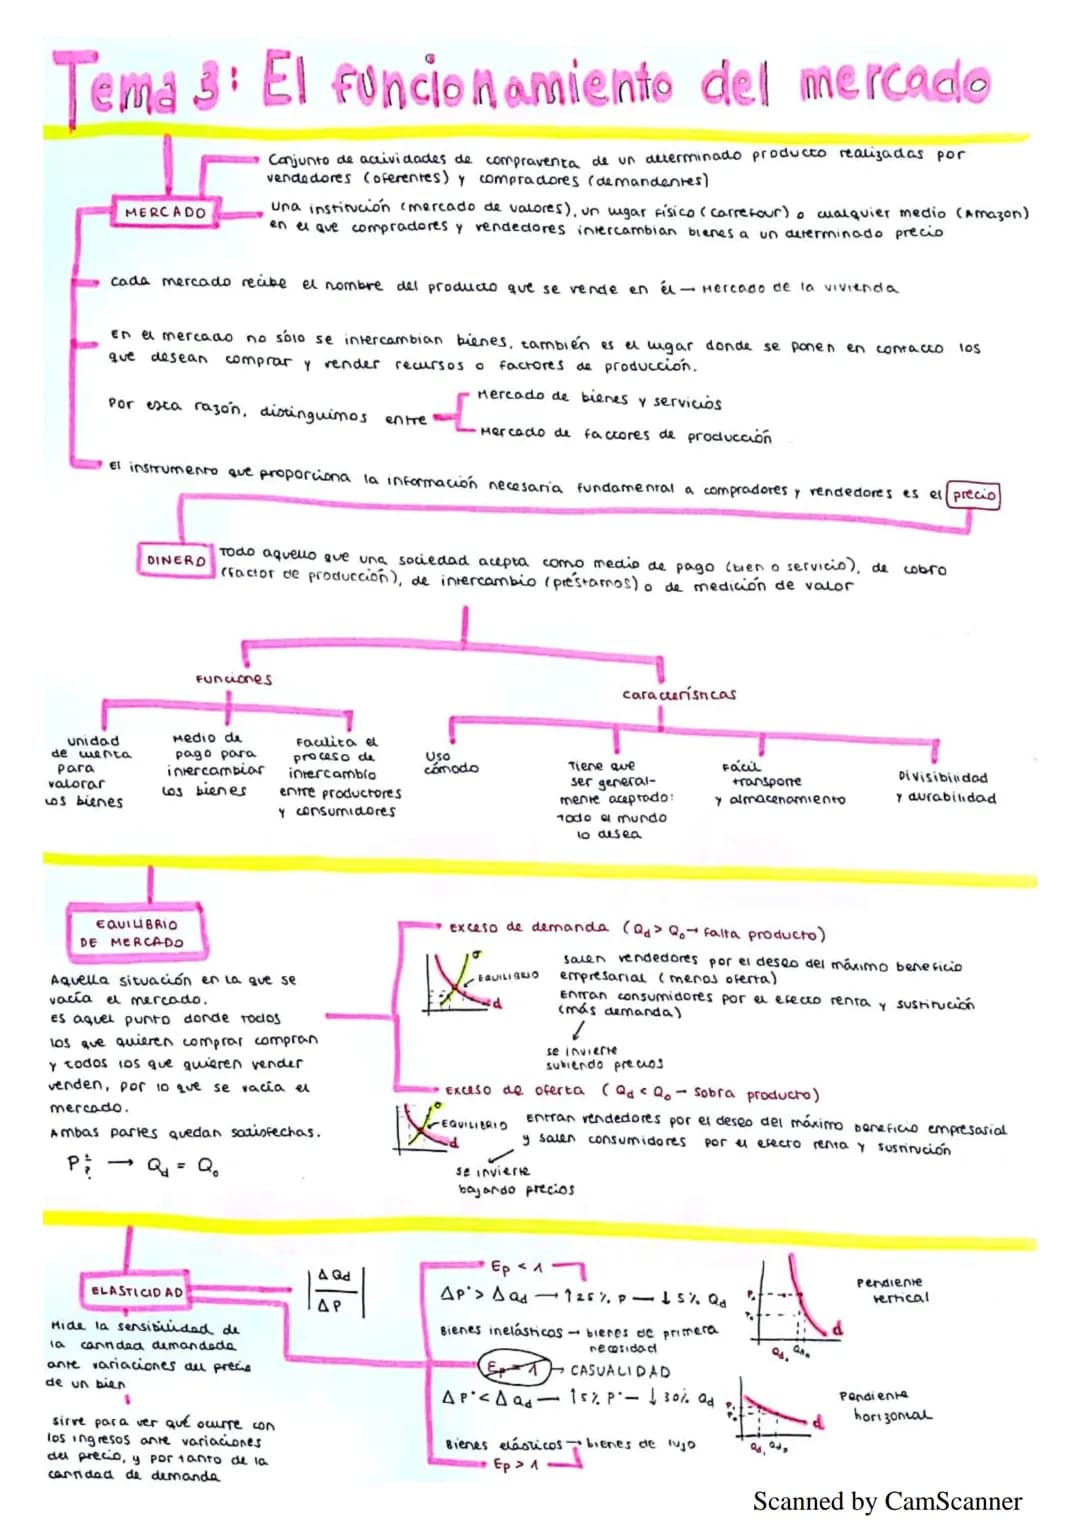 Tema 3: El funcionamiento del mercado
Conjunto de actividades de compraventa de un determinado producto realizadas por
vendedores (oferentes) y compradores (demandantes)
MERCADO
Una institución (mercado de valores), un lugar físico (carrefour) o cualquier medio (Amazon)
en el que compradores y vendedores intercambian bienes a un determinado precio
Cada mercado recibe el nombre del producto que se vende en él → Mercado de la vivienda
En el mercado no sólo se intercambian bienes, también es el lugar donde se ponen en contacto los
que desean comprar y vender recursos o factores de producción.
Por esta razón, distinguimos entre
Mercado de bienes y servicios
Mercado de factores de producción
El instrumento que proporciona la información necesaria fundamental a compradores y vendedores es el precio
DINERO
Todo aquello que una sociedad acepta como medio de pago (bien o servicio), de cobro
(factor de producción), de intercambio (préstamos) o de medición de valor
Funciones
características
Unidad
de cuenta
para
valorar
los bienes
Medio de
pago para
intercambiar
los bienes
Facilita el
proceso de
intercambio
entre productores
y consumidores
Uso
cómodo
Tiene que
ser general-
mente aceptado:
Todo el mundo
lo desea
Fácil
transporte
y almacenamiento
Divisibilidad
y durabilidad
EQUILIBRIO
DE MERCADO
Aquella situación en la que se
vacía el mercado.
Es aquel punto donde todos
los que quieren comprar compran
y todos los que quieren vender
venden, por lo que se vacía el
mercado.
Ambas partes quedan satisfechas.
→ Qd = Qo
Exceso de demanda (Qd > Qo → falta producto)
o
EQUILIBRIO
d
Salen vendedores por el deseo del máximo beneficio
empresarial (menos oferta)
Entran consumidores por el efecto renta y sustitución
(más demanda)
se invierte
subiendo precios
Exceso de oferta (Qd < Qo - Sobra producto)
o
EQUILIBRIO
d
Entran vendedores por el deseo del máximo beneficio empresarial
y salen consumidores por el efecto renta y sustitución
se invierte
bajando precios
ELASTICIDAD
|ΔQd
ΔP|
Mide la sensibilidad de
la cantidad demandada
ante variaciones del precio
de un bien
sirve para ver qué ocurre con
los ingresos ante variaciones
del precio, y por tanto de la
cantidad de demanda
Ep < 1
ΔP > ΔQd → ↑25% P — ↓5% Qd
Bienes inelásticos → bienes de primera
necesidad
Ep = 1 → CASUALIDAD
ΔP < ΔQd — ↑5% P — ↓30% Qd
Bienes elásticos → bienes de lujo
Ep > 1
d
Pendiente
vertical
d
Pendiente
horizontal
Scanned by CamScanner